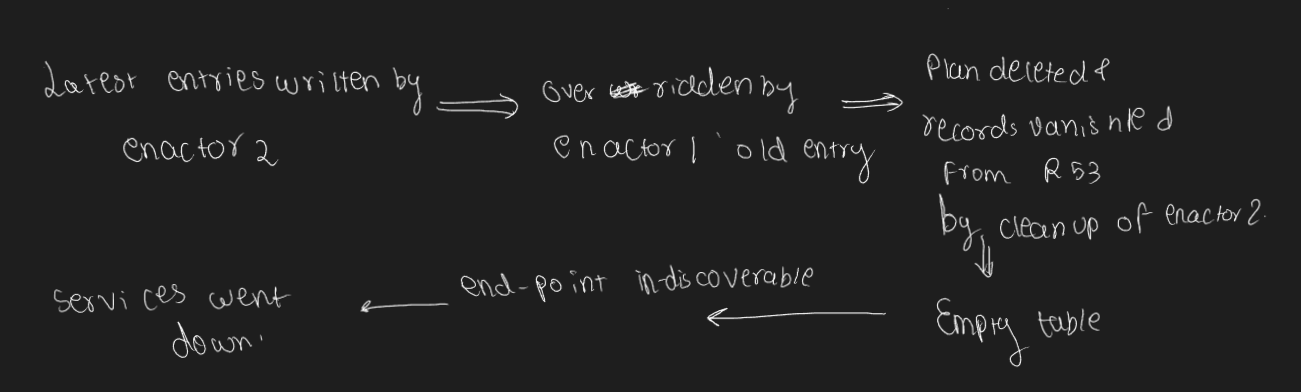 Latest entries written by
enactor 2
over ridden by
enactor 1 ' old entry
Plan deleted &
records vanished
From R53
by cleanup of enactor 2.
Empty table
end-point indiscoverable
services went
down.